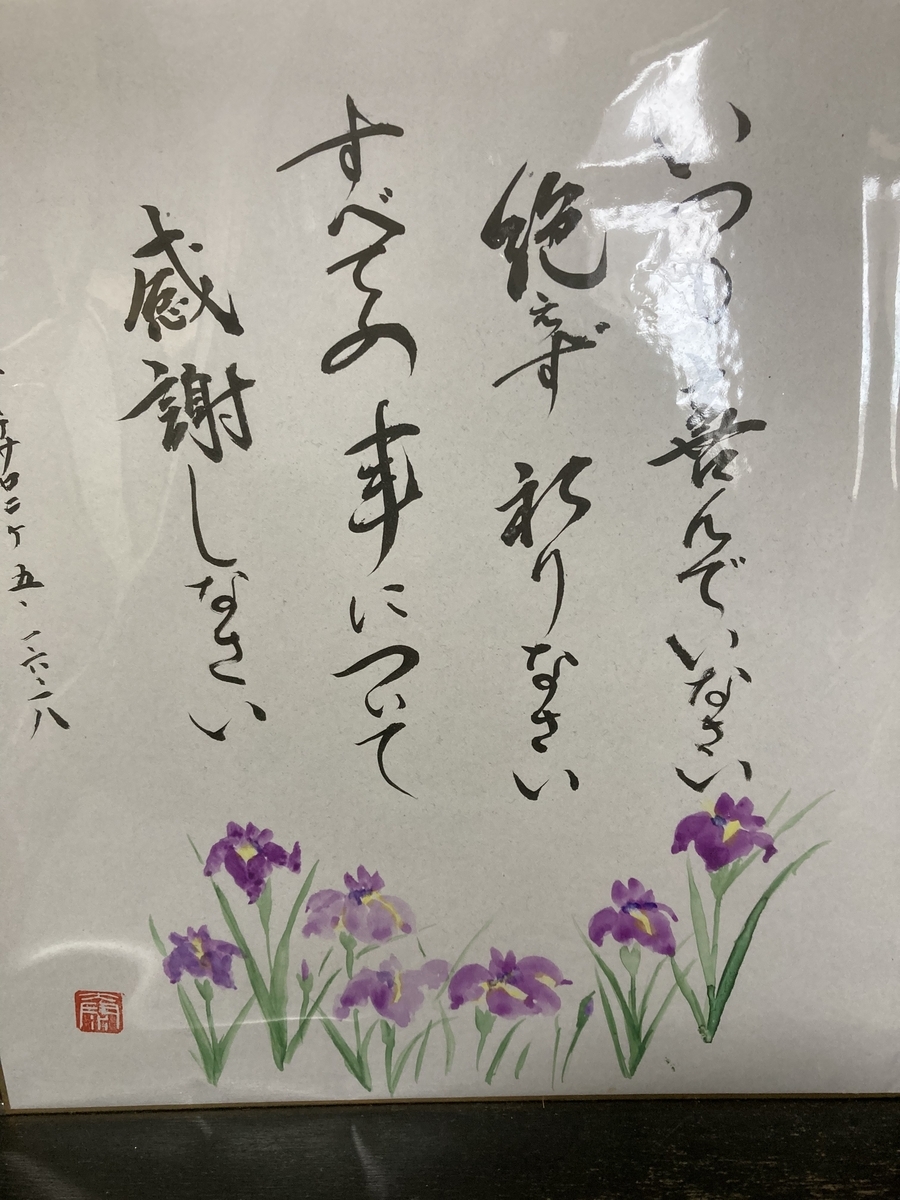 いつも喜んでいなさい
絶えず祈りなさい
すべての事について
感謝しなさい
テサロニケ五、一六、一八